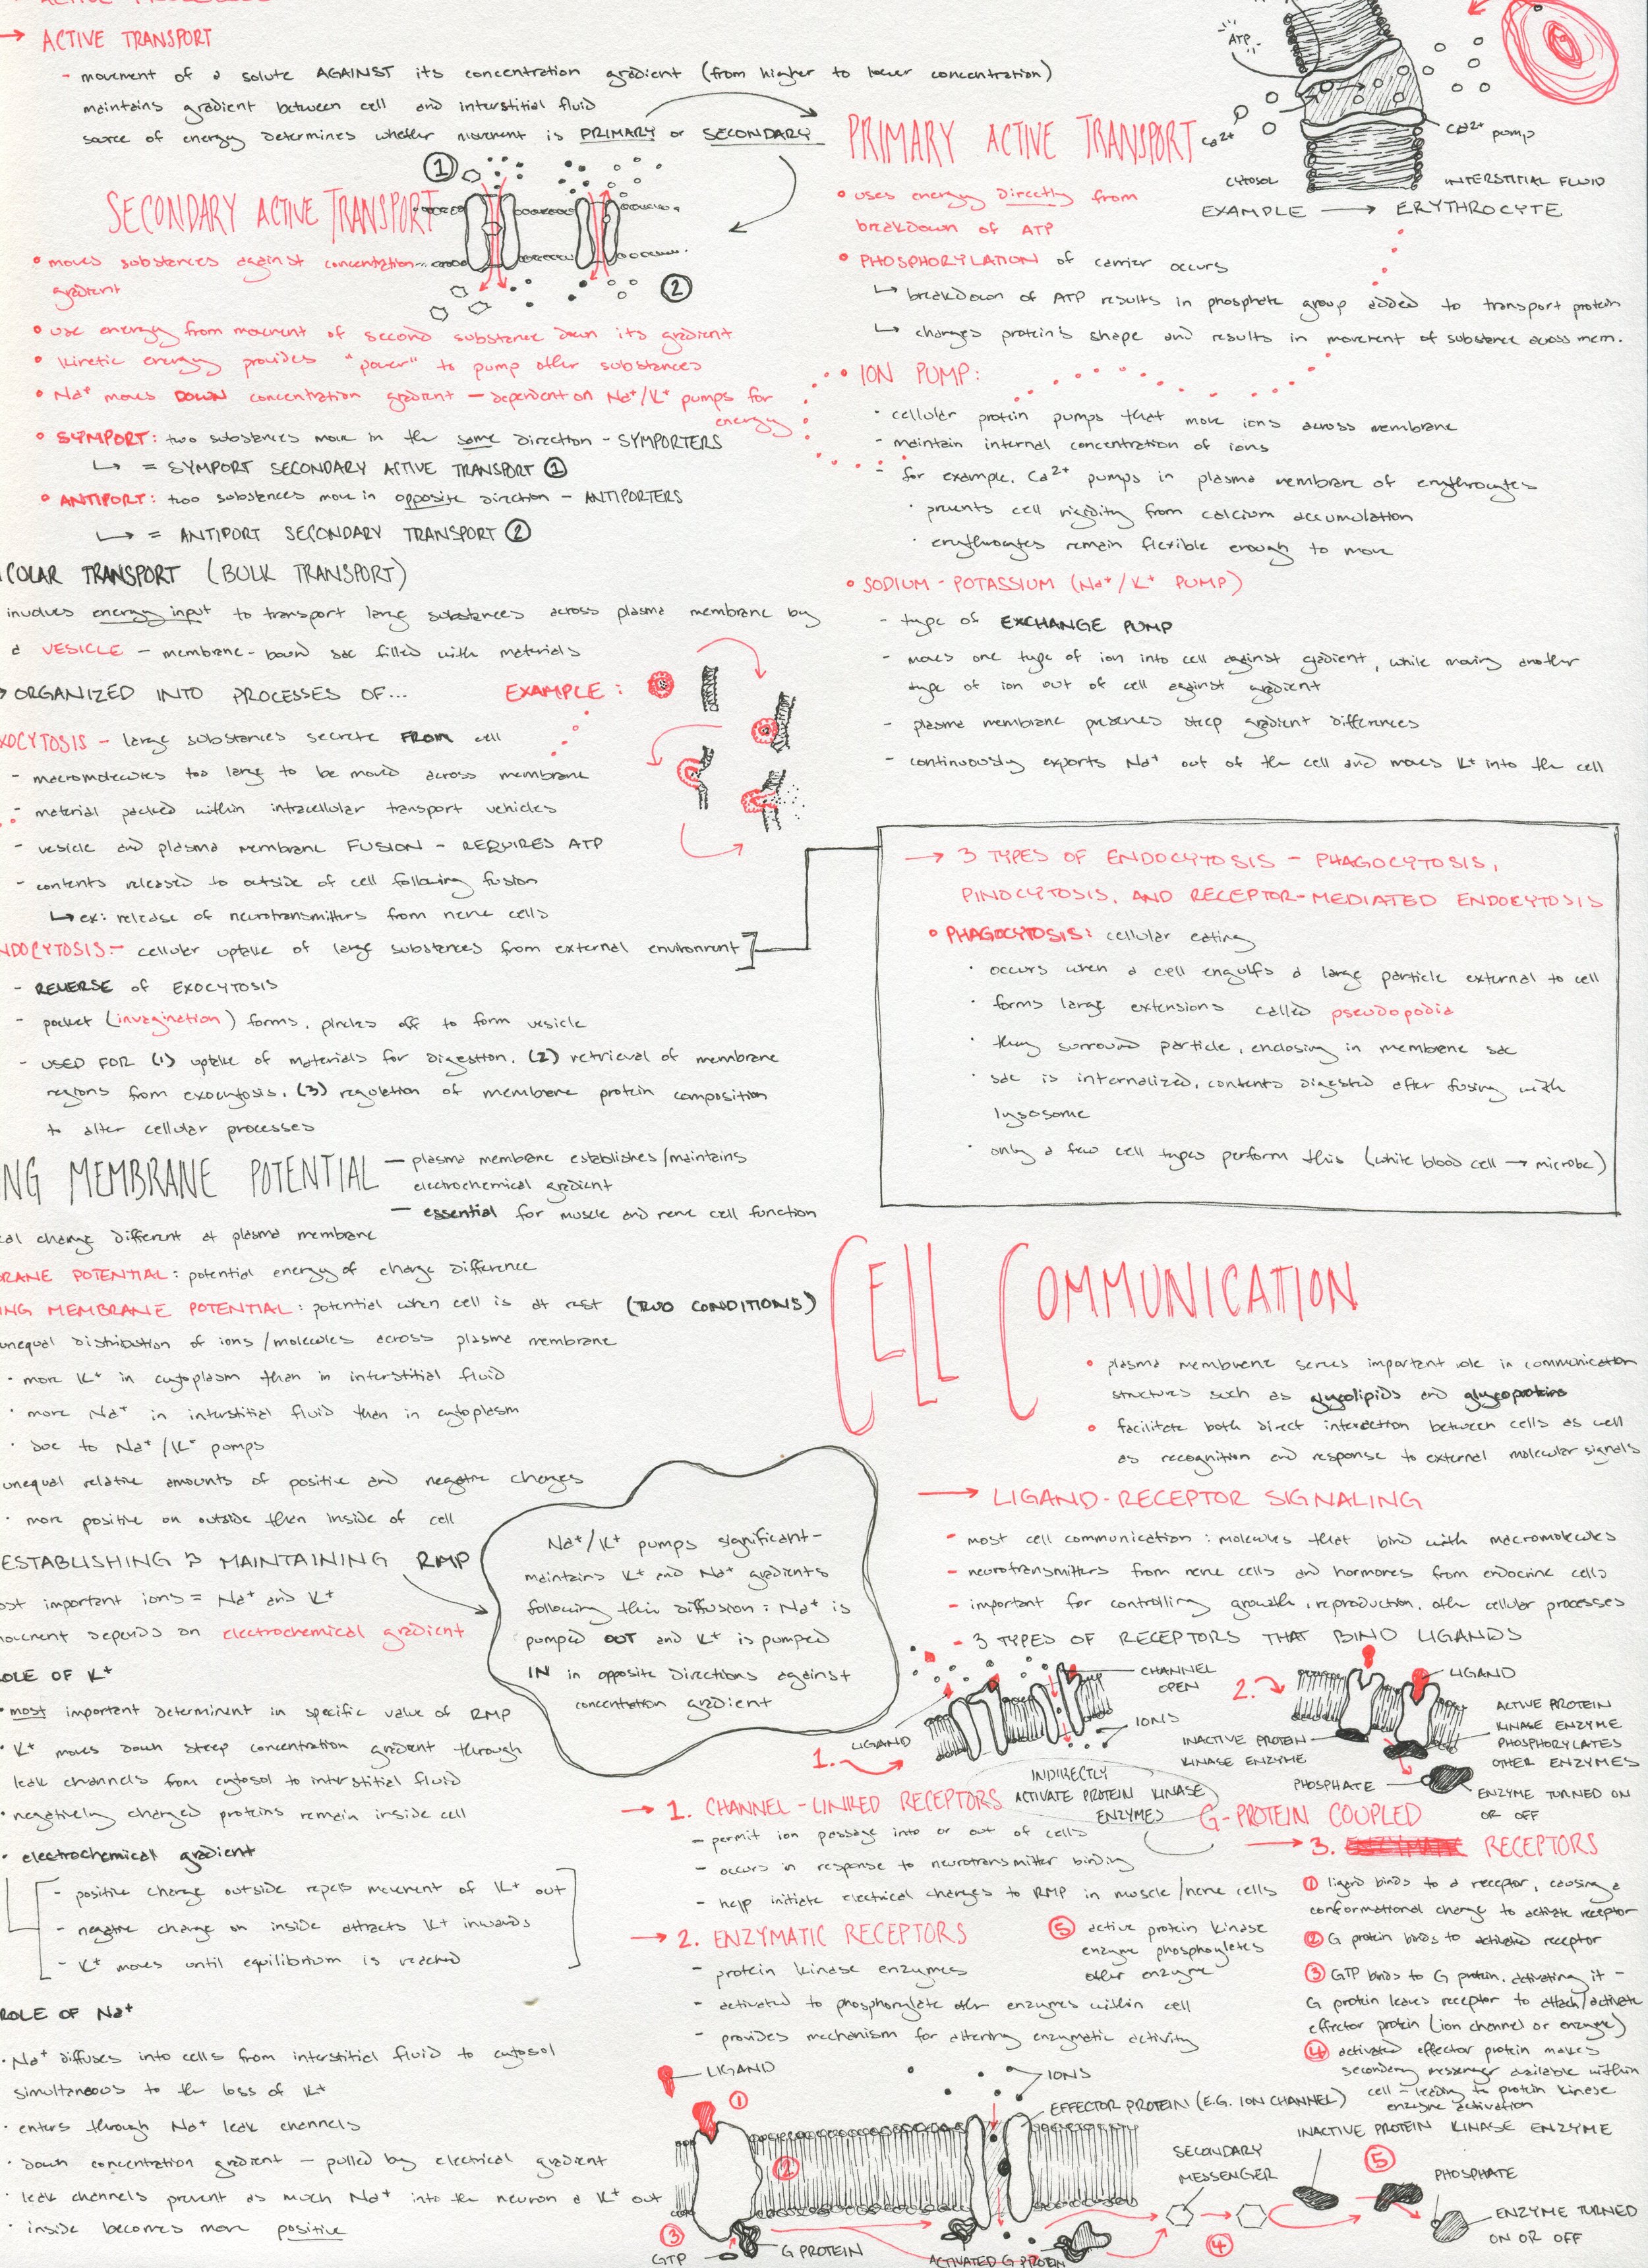 → ACTIVE TRANSPORT
- movement of a solute AGAINST its concentration gradient (from higher to lower concentration)
maintains gradient between cell and interstitial fluid
source of energy determines whether movement is PRIMARY or SECONDARY
SECONDARY ACTIVE TRANSPORT
① 
②
• moves substances against concentration
gradient
• use energy from movement of second substance down its gradient
• kinetic energy provides "power" to pump other substances
• Na+ moves DOWN concentration gradient - dependent on Na+/K+ pumps for
energy
• SYMPORT: two substances move in the same direction - SYMPORTERS
↳ = SYMPORT SECONDARY ACTIVE TRANSPORT ①
• ANTIPORT: two substances move in opposite direction - ANTIPORTERS
↳ = ANTIPORT SECONDARY TRANSPORT ②
PRIMARY ACTIVE TRANSPORT
ATP
Ca2+
Ca2+ pump
CYTOSOL
INTERSTITIAL FLUID
EXAMPLE → ERYTHROCYTE
• uses energy directly from
breakdown of ATP
• PHOSPHORYLATION of carrier occurs
↳ breakdown of ATP results in phosphate group added to transport protein
↳ changes protein's shape and results in movement of substance across mem.
• ION PUMP:
· cellular protein pumps that move ions across membrane
- maintain internal concentration of ions
- for example, Ca2+ pumps in plasma membrane of erythrocytes
· prevents cell rigidity from calcium accumulation
· erythrocytes remain flexible enough to move
• SODIUM-POTASSIUM (Na+/K+ PUMP)
- type of EXCHANGE PUMP
- moves one type of ion into cell against gradient, while moving another
type of ion out of cell against gradient
- plasma membrane preserves steep gradient differences
- continuously exports Na+ out of the cell and moves K+ into the cell
CULAR TRANSPORT (BULK TRANSPORT)
involves energy input to transport large substances across plasma membrane by
a VESICLE - membrane-bound sac filled with materials
→ ORGANIZED INTO PROCESSES OF...
EXAMPLE:
XOCYTOSIS - large substances secrete FROM cell
- macromolecules too large to be moved across membrane
- material packed within intracellular transport vehicles
- vesicle and plasma membrane FUSION - REQUIRES ATP
- contents released to outside of cell following fusion
↳ ex: release of neurotransmitters from nerve cells
NDOCYTOSIS - cellular uptake of large substances from external environment
- REVERSE of EXOCYTOSIS
- pocket (invagination) forms, pinches off to form vesicle
- USED FOR (1) uptake of materials for digestion, (2) retrieval of membrane
regions from exocytosis, (3) regulation of membrane protein composition
to alter cellular processes
→ 3 TYPES OF ENDOCYTOSIS - PHAGOCYTOSIS,
PINOCYTOSIS, AND RECEPTOR-MEDIATED ENDOCYTOSIS
• PHAGOCYTOSIS: cellular eating
· occurs when a cell engulfs a large particle external to cell
· forms large extensions called pseudopodia
· they surround particle, enclosing in membrane sac
· sac is internalized, contents digested after fusing with
lysosome
· only a few cell types perform this (white blood cell → microbe)
NG MEMBRANE POTENTIAL
- plasma membrane establishes/maintains
electrochemical gradient
- essential for muscle and nerve cell function
cal charge different at plasma membrane
BRANE POTENTIAL: potential energy of charge difference
ING MEMBRANE POTENTIAL: potential when cell is at rest (TWO CONDITIONS)
unequal distribution of ions/molecules across plasma membrane
· more K+ in cytoplasm than in interstitial fluid
· more Na+ in interstitial fluid than in cytoplasm
· due to Na+/K+ pumps
unequal relative amounts of positive and negative charges
· more positive on outside then inside of cell
ESTABLISHING & MAINTAINING RMP
ost important ions = Na+ and K+
movement depends on electrochemical gradient
Na+/K+ pumps significant-
maintains K+ and Na+ gradients
following their diffusion: Na+ is
pumped OUT and K+ is pumped
IN in opposite directions against
concentration gradient
OLE OF K+
· most important determinent in specific value of RMP
· K+ moves down steep concentration gradient through
leak channels from cytosol to interstitial fluid
· negatively charged proteins remain inside cell
· electrochemical gradient
- positive charge outside repels movement of K+ out
- negative charge on inside attracts K+ inwards
- K+ moves until equilibrium is reached
ROLE OF Na+
· Na+ diffuses into cells from interstitial fluid to cytosol
simultaneous to the loss of K+
· enters through Na+ leak channels
· down concentration gradient - pulled by electrical gradient
· leak channels prevent as much Na+ into the neuron a K+ out
· inside becomes more positive
CELL COMMUNICATION
• plasma membrane serves important role in communication
structures such as glycolipids and glycoproteins
• facilitate both direct interaction between cells as well
as recognition and response to external molecular signals
→ LIGAND-RECEPTOR SIGNALING
- most cell communication: molecules that bind with macromolecules
- neurotransmitters from nerve cells and hormones from endocrine cells
- important for controlling growth, reproduction, other cellular processes
- 3 TYPES OF RECEPTORS THAT BIND LIGANDS
CHANNEL
OPEN
IONS
LIGAND
1.
2.
LIGAND
INACTIVE PROTEIN
KINASE ENZYME
ACTIVE PROTEIN
KINASE ENZYME
PHOSPHORYLATES
OTHER ENZYMES
PHOSPHATE
ENZYME TURNED ON
OR OFF
→ 1. CHANNEL-LINKED RECEPTORS
- permit ion passage into or out of cells
- occurs in response to neurotransmitter binding
- help initiate electrical changes to RMP in muscle/nerve cells
INDIRECTLY
ACTIVATE PROTEIN KINASE
ENZYMES
→ 2. ENZYMATIC RECEPTORS
- protein kinase enzymes
- activated to phosphorylate other enzymes within cell
- provides mechanism for altering enzymatic activity
G-PROTEIN COUPLED
→ 3. RECEPTORS
① ligand binds to a receptor, causing a
conformational change to activate receptor
② G protein binds to activated receptor
③ GTP binds to G protein, activating it -
G protein leaves receptor to attach/activate
effector protein (ion channel or enzyme)
④ activated effector protein makes
secondary messenger available within
cell - leading to protein kinase
enzyme activation
⑤ active protein kinase
enzyme phosphorylates
other enzyme
LIGAND
①
IONS
EFFECTOR PROTEIN (E.G. ION CHANNEL)
②
③
GTP
G PROTEIN
ACTIVATED G PROTEIN
SECONDARY
MESSENGER
④
INACTIVE PROTEIN KINASE ENZYME
⑤
PHOSPHATE
ENZYME TURNED
ON OR OFF